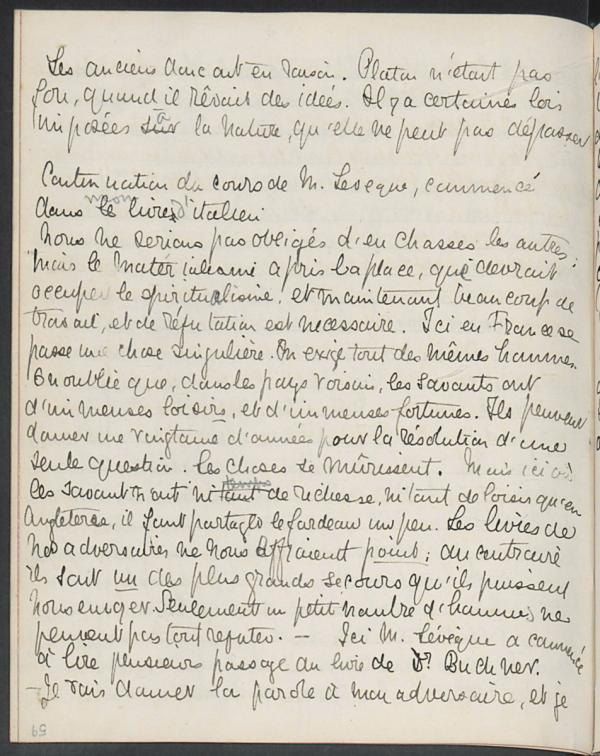 Les anciens donc ont en raison. Platon n'étant pas
fou, quand il rêvait des idées. Il y a certaines lois
imposées sur à la nature, qu'elle ne peut pas dépasser
Continuation du cours de M. Leveque, commencé
dans mon le livre d'italien
Nous ne serions pas obligés d'en chasser les autres;
mais le matérialisme a pris la place, que devrait
occuper le spiritualisme, et maintenant beaucoup de
travail, et de réfutation est necessaire. Ici en France se
passe une chose singulière. On exige tout des mêmes hommes.
On oublie que, dans les pays voisins, les savants ont
d'immenses loisirs, et d'immenses fortunes. Ils peuvent
donner une vingtaine d'années pour la résolution d'une
seule question. Les choses se mûrissent. Mais ici où
les savants n'ont ni tant de richesse, ni tant de loisir qu'en
Angleterre, il faut partager le fardeau un peu. Les livres de
nos adversaires ne nous effraient point; au contraire
ils sont un des plus grands secours qu'ils puissent
nous envoyer. Seulement un petit nombre d'hommes ne
peuvent pas tout réfuter. — Ici M. Lévêque a commencé
à lire plusieurs passage du livre de Dr. Buchner.
— Je vais donner la parole à mon adversaire, et je
59